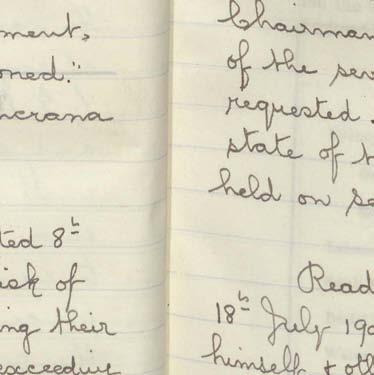 ment,
oned."
ncrana
ted 8th
isk of
ing their
exceeding
Chairman
of the
requested.
state of
held on
Read
18th July 19
himself +